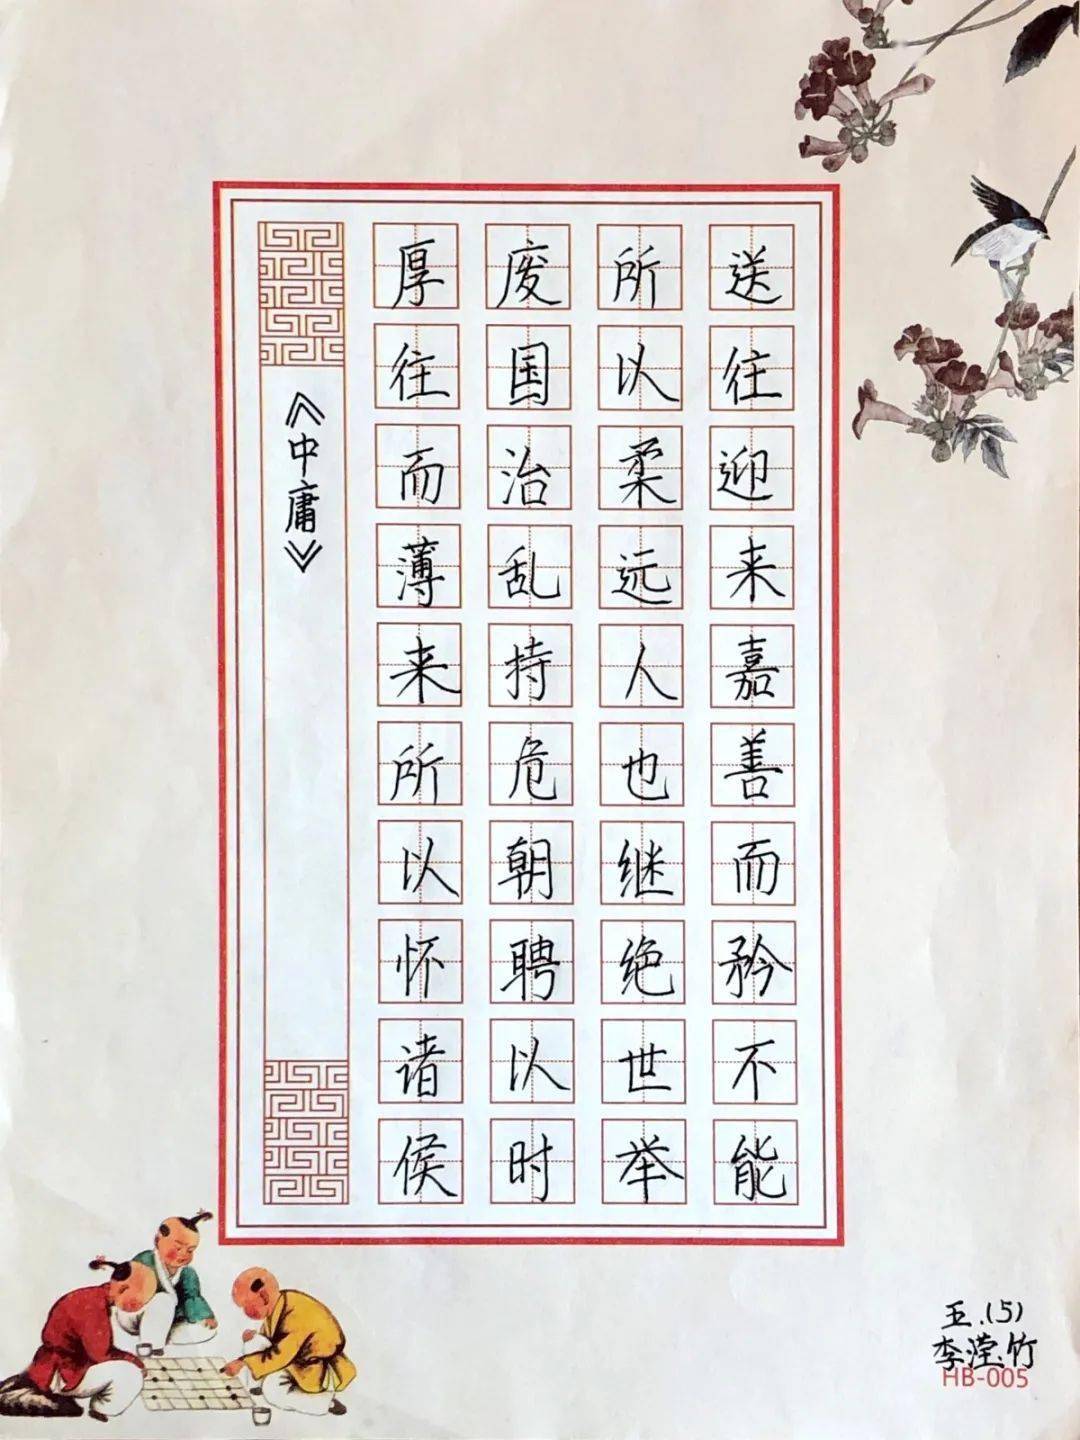 送往迎来嘉善而矜不能
所以柔远人也继绝世举
废国治乱持危朝聘以时
厚往而薄来所以怀诸侯
《中庸》
五.(5)
李滢竹
HB-005